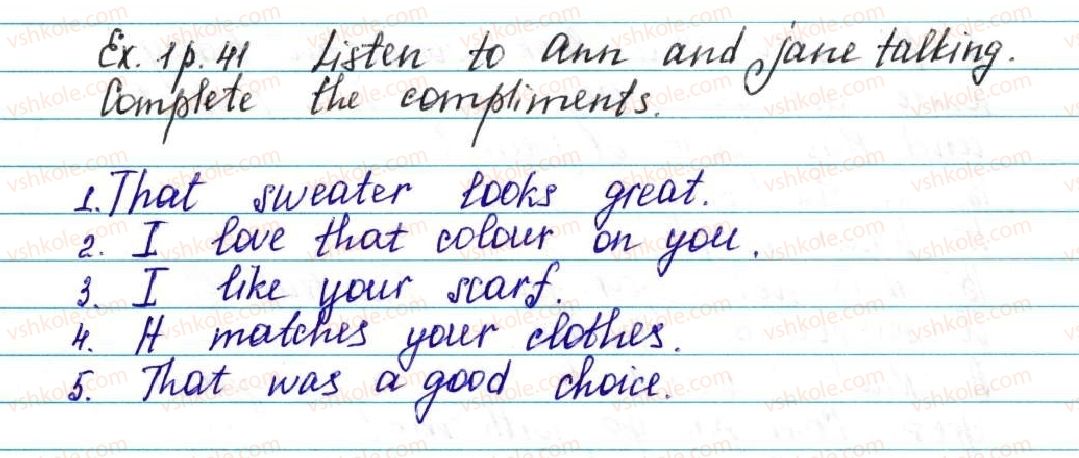 Ex. 1 p. 41 Listen to Ann and Jane talking.
Complete the compliments.
1. That sweater looks great.
2. I love that colour on you.
3. I like your scarf.
4. It matches your clothes.
5. That was a good choice.